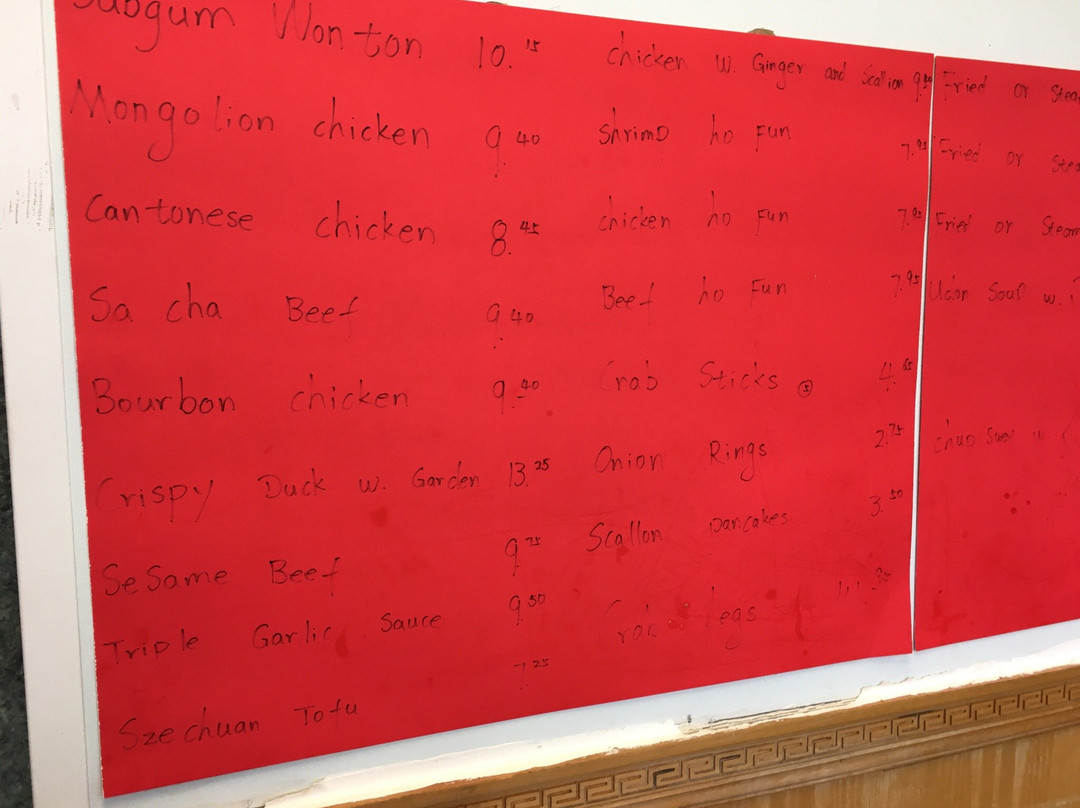 Subgum Won ton 10.15
Mongolion chicken 9.40
Cantonese chicken 8.45
Sa cha Beef 9.40
Bourbon chicken 9.40
Crispy Duck w. Garden 13.25
Sesame Beef 9.75
Triple Garlic Sauce 9.50
Szechuan Tofu 7.25
chicken w. Ginger and Scallion 9.40
Shrimp ho Fun 7.95
chicken ho Fun 7.95
Beef ho Fun 7.95
Crab Sticks 4.65
Onion Rings 2.75
Scallon pancakes 3.50
Crab Legs
Fried or
Fried or
Fried or
Udon Soup w.